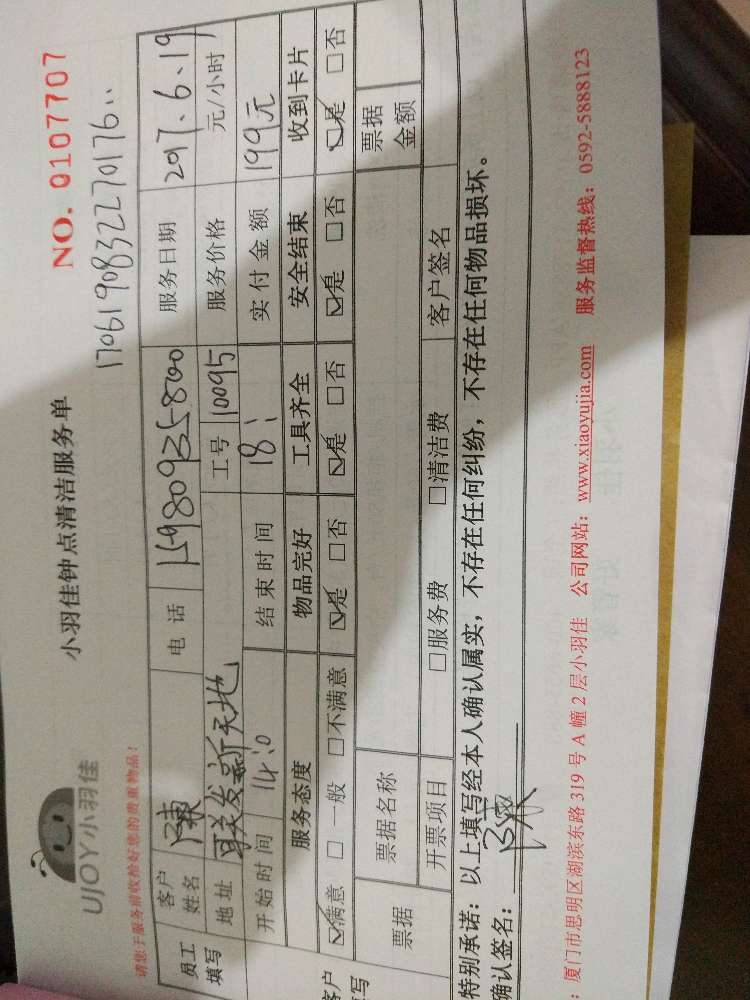 UJOY小羽佳
小羽佳钟点清洁服务单
NO. 0107707
请您于服务前收拾好您的贵重物品！
170619083227 0176..
员工填写 客户姓名 陳 电话 15980935800 服务日期 2017.6.19
地址 联发新天地 工号 10095 服务价格 元/小时
开始时间 14:0 结束时间 18: 实付金额 199元
服务态度 物品完好 工具齐全 安全结束 收到卡片
☑满意 □一般 □不满意 ☑是 □否 ☑是 □否 ☑是 □否 ☑是 □否
票据 票据名称 票据金额
开票项目 □服务费 □清洁费 客户签名
特别承诺：以上填写经本人确认属实，不存在任何纠纷，不存在任何物品损坏。
确认签名：
：厦门市思明区湖滨东路 319 号 A 幢 2 层小羽佳 公司网站：www.xiaoyujia.com 服务监督热线：0592-5888123